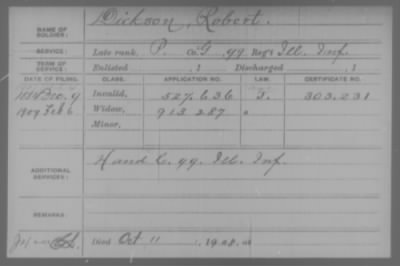 Dickson, Robert.
NAME OF SOLDIER:
SERVICE: Late rank, P. Co. G, 99 Reg't Ill. Inf.
TERM OF SERVICE: Enlisted , 1 Discharged , 1
DATE OF FILING. CLASS. APPLICATION NO. LAW. CERTIFICATE NO.
Invalid, 527.636 303.231
1909 Feb 6 Widow, 913.287 "
Minor,
ADDITIONAL SERVICES: H and C. 99. Ill. Inf.
REMARKS:
Died Oct 11, 1908, at